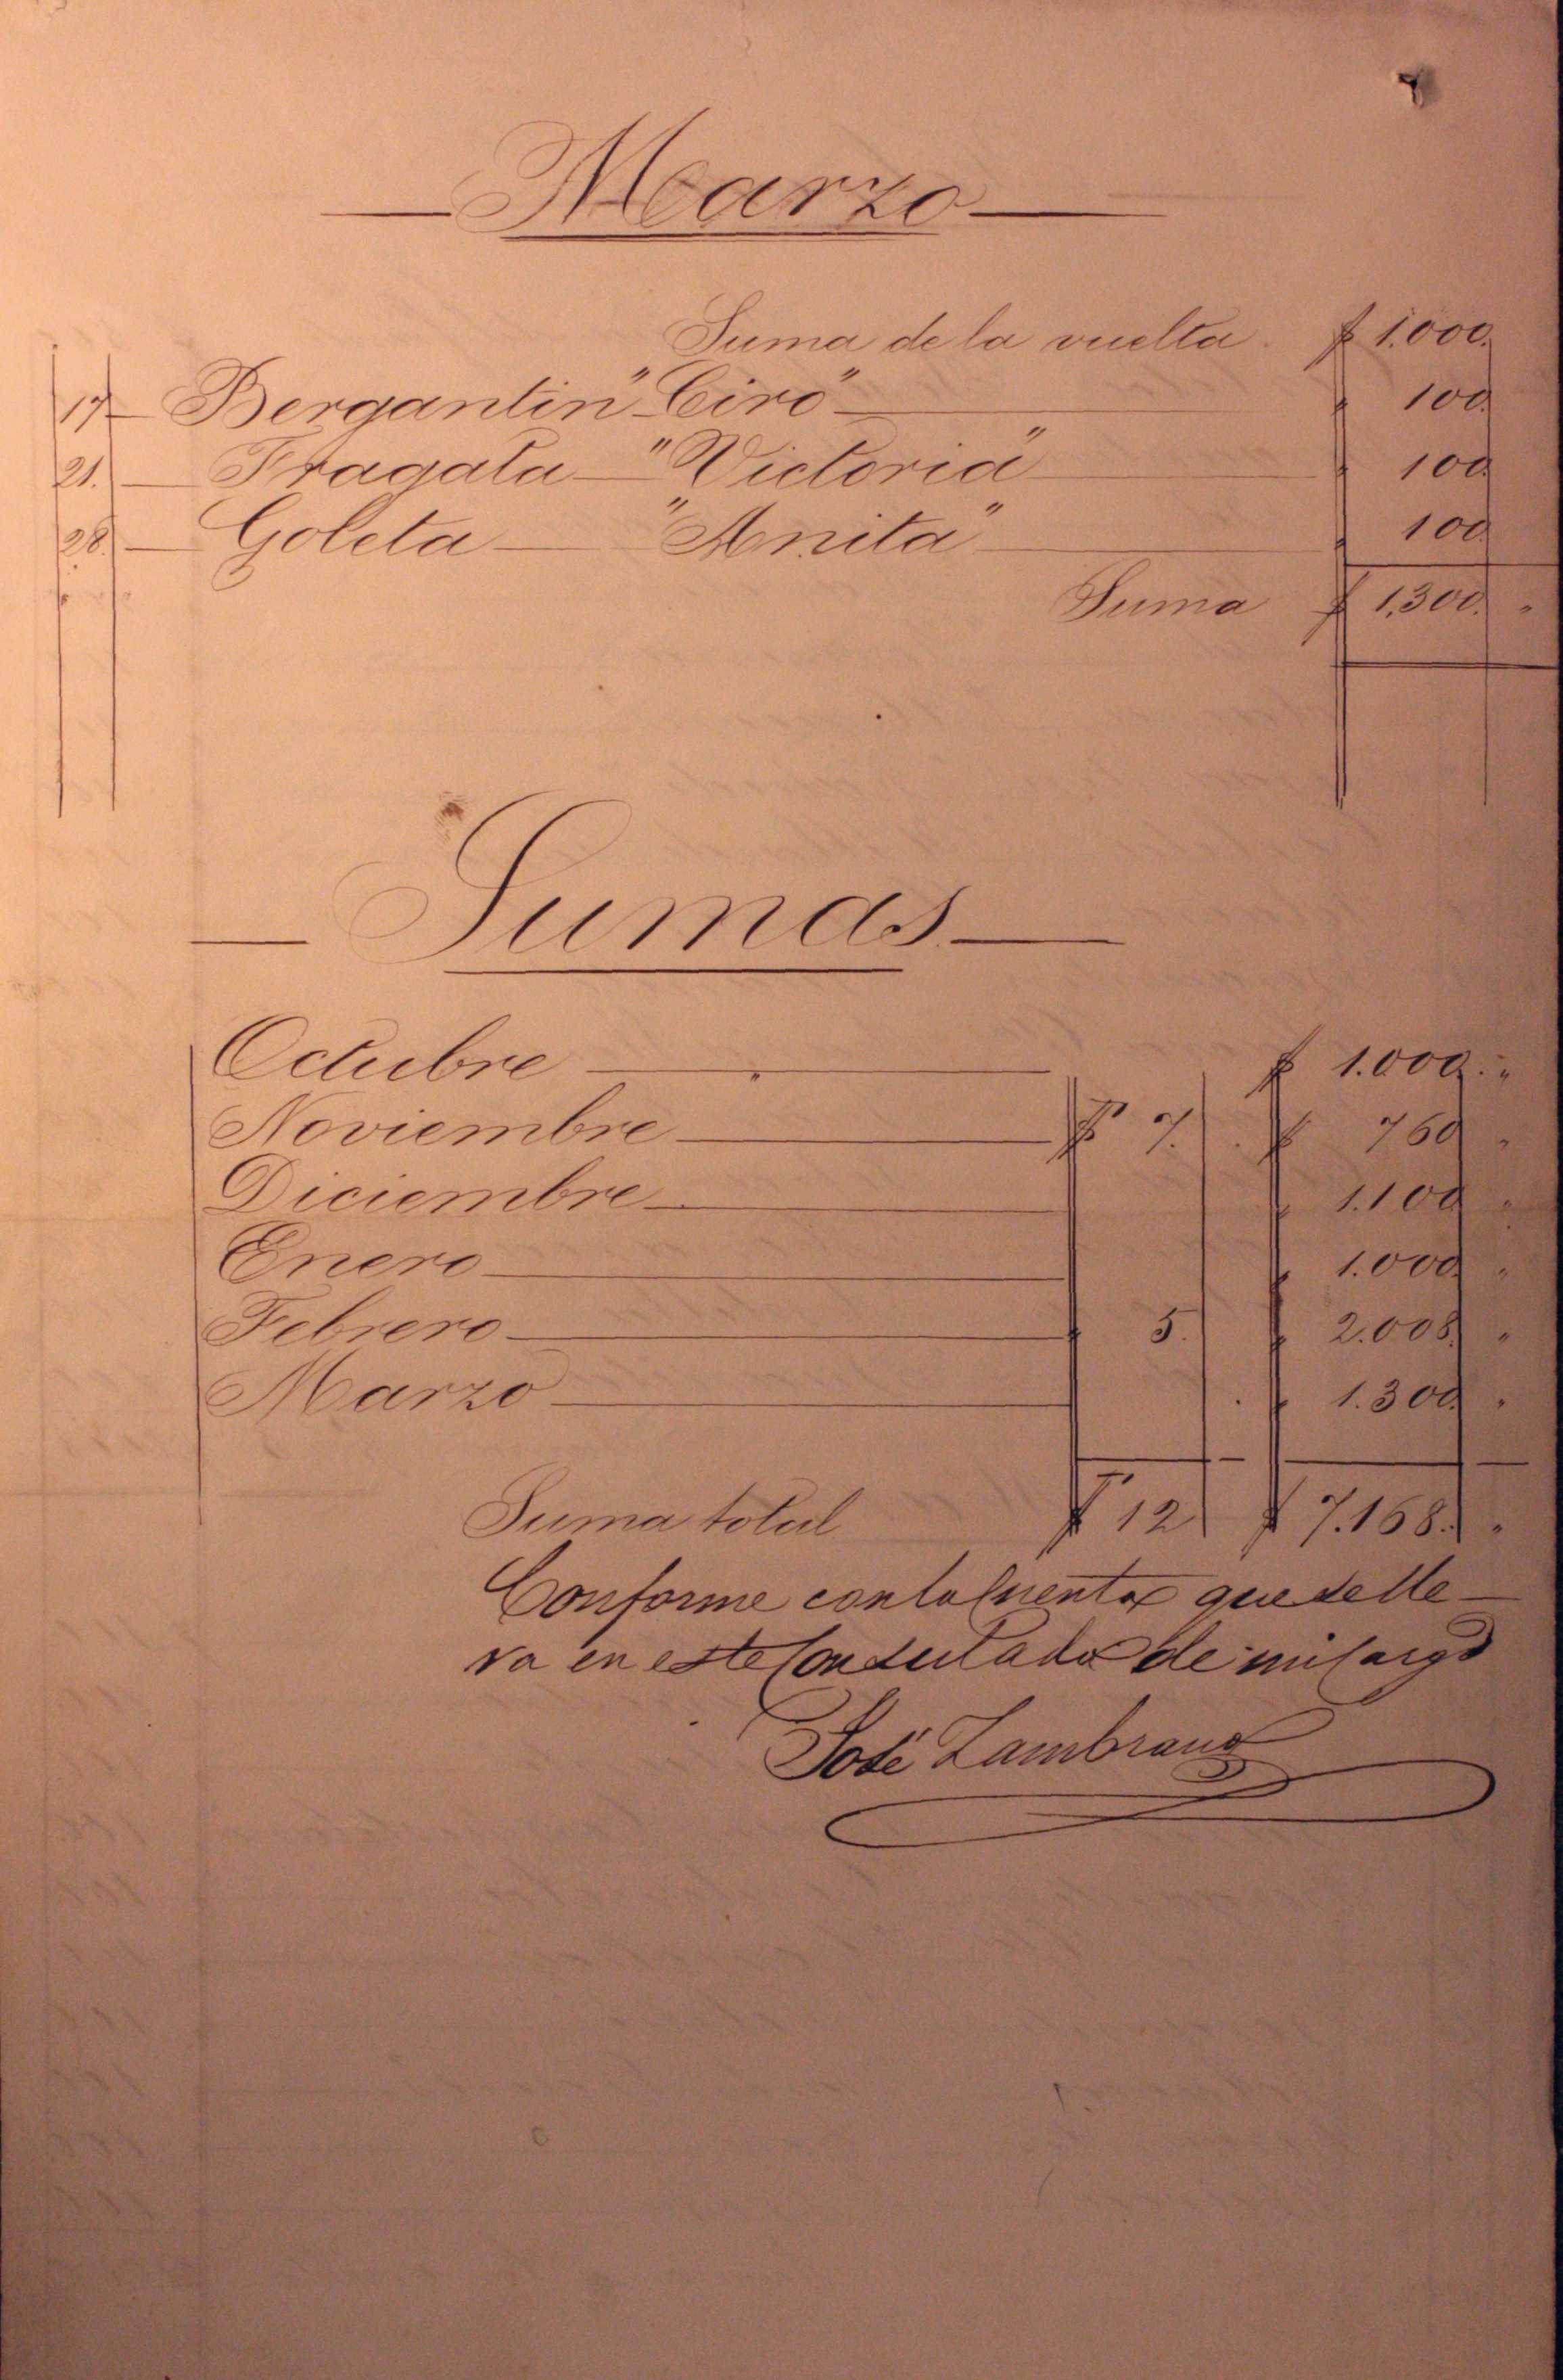 Marzo
Suma de la vuelta $ 1.000.
17 Bergantin "Ciro" 100.
21. Fragata "Victoria" 100
28. Goleta "Anita" 100
Suma $ 1,300. "
Sumas
Octubre $ 1.000. "
Noviembre $ 7. $ 760 "
Diciembre 1.100 "
Enero 1.000 "
Febrero 5. 2.008. "
Marzo 1.300. "
Suma total $ 12 $ 7.168. "
Conforme con la Cuenta que se lle-
va en este Consulado de mi Cargo
José Zambrano